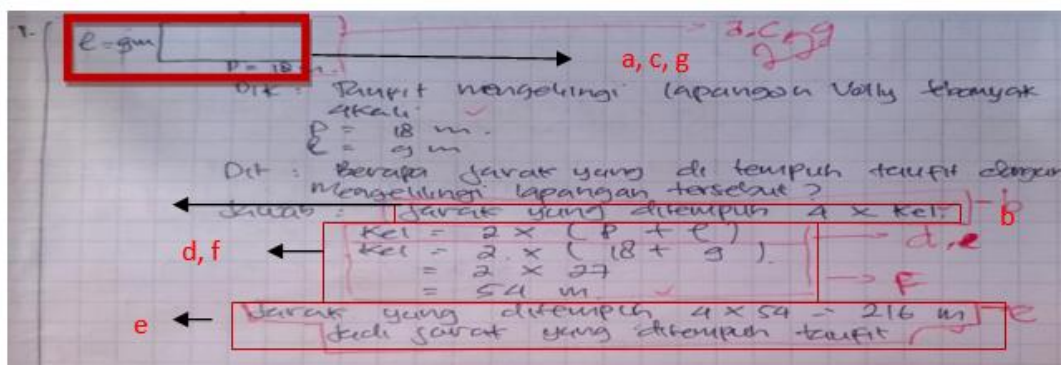 1. l = 9m a, c, g
P = 18 m a, c, g
Dik : Taufit mengelilingi lapangan Volly sebanyak
4kali
P = 18 m.
l = 9 m
Dit : Berapa jarak yang di tempuh taufit dengan
mengelilingi lapangan tersebut ?
Jawab : Jarak yang ditempuh 4 x Kel. b b
Kel = 2 x ( P + l ) d, e
d, f Kel = 2 x ( 18 + 9 ).
= 2 x 27 F
= 54 m.
e Jarak yang ditempuh 4 x 54 = 216 m e
Jadi jarak yang ditempuh taufit